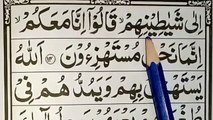 اِلٰى شَيٰطِيْنِهِمْ ۙ قَالُوْٓا اِنَّا مَعَكُمْ ۙ
اِنَّمَا نَحْنُ مُسْتَهْزِءُوْنَ ﴿۱۴﴾ اَللّٰهُ
يَسْتَهْزِئُ بِهِمْ وَيَمُدُّهُمْ فِيْ